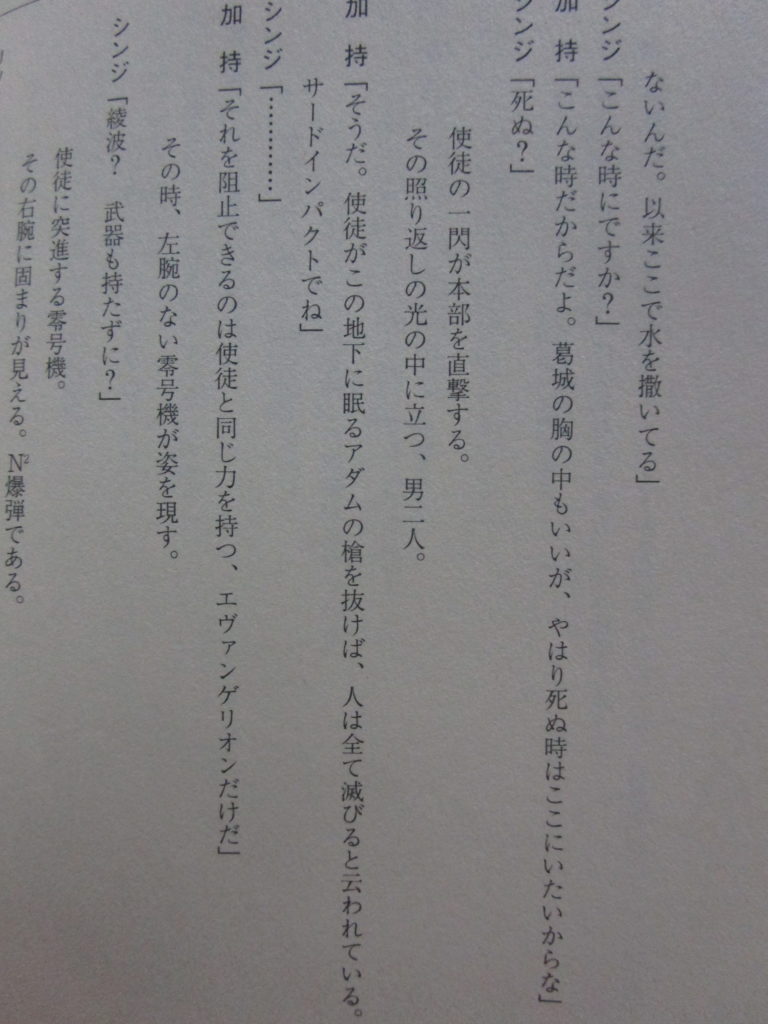 ないんだ。以来ここで水を撒いてる」
シンジ「こんな時にですか?」
加　持「こんな時だからだよ。葛城の胸の中もいいが、やはり死ぬ時はここにいたいからな」
シンジ「死ぬ?」
使徒の一閃が本部を直撃する。
その照り返しの光の中に立つ、男二人。
加　持「そうだ。使徒がこの地下に眠るアダムの槍を抜けば、人は全て滅びると云われている。
サードインパクトでね」
シンジ「…………」
加　持「それを阻止できるのは使徒と同じ力を持つ、エヴァンゲリオンだけだ」
その時、左腕のない零号機が姿を現す。
シンジ「綾波?　武器も持たずに?」
使徒に突進する零号機。
その右腕に固まりが見える。N²爆弾である。